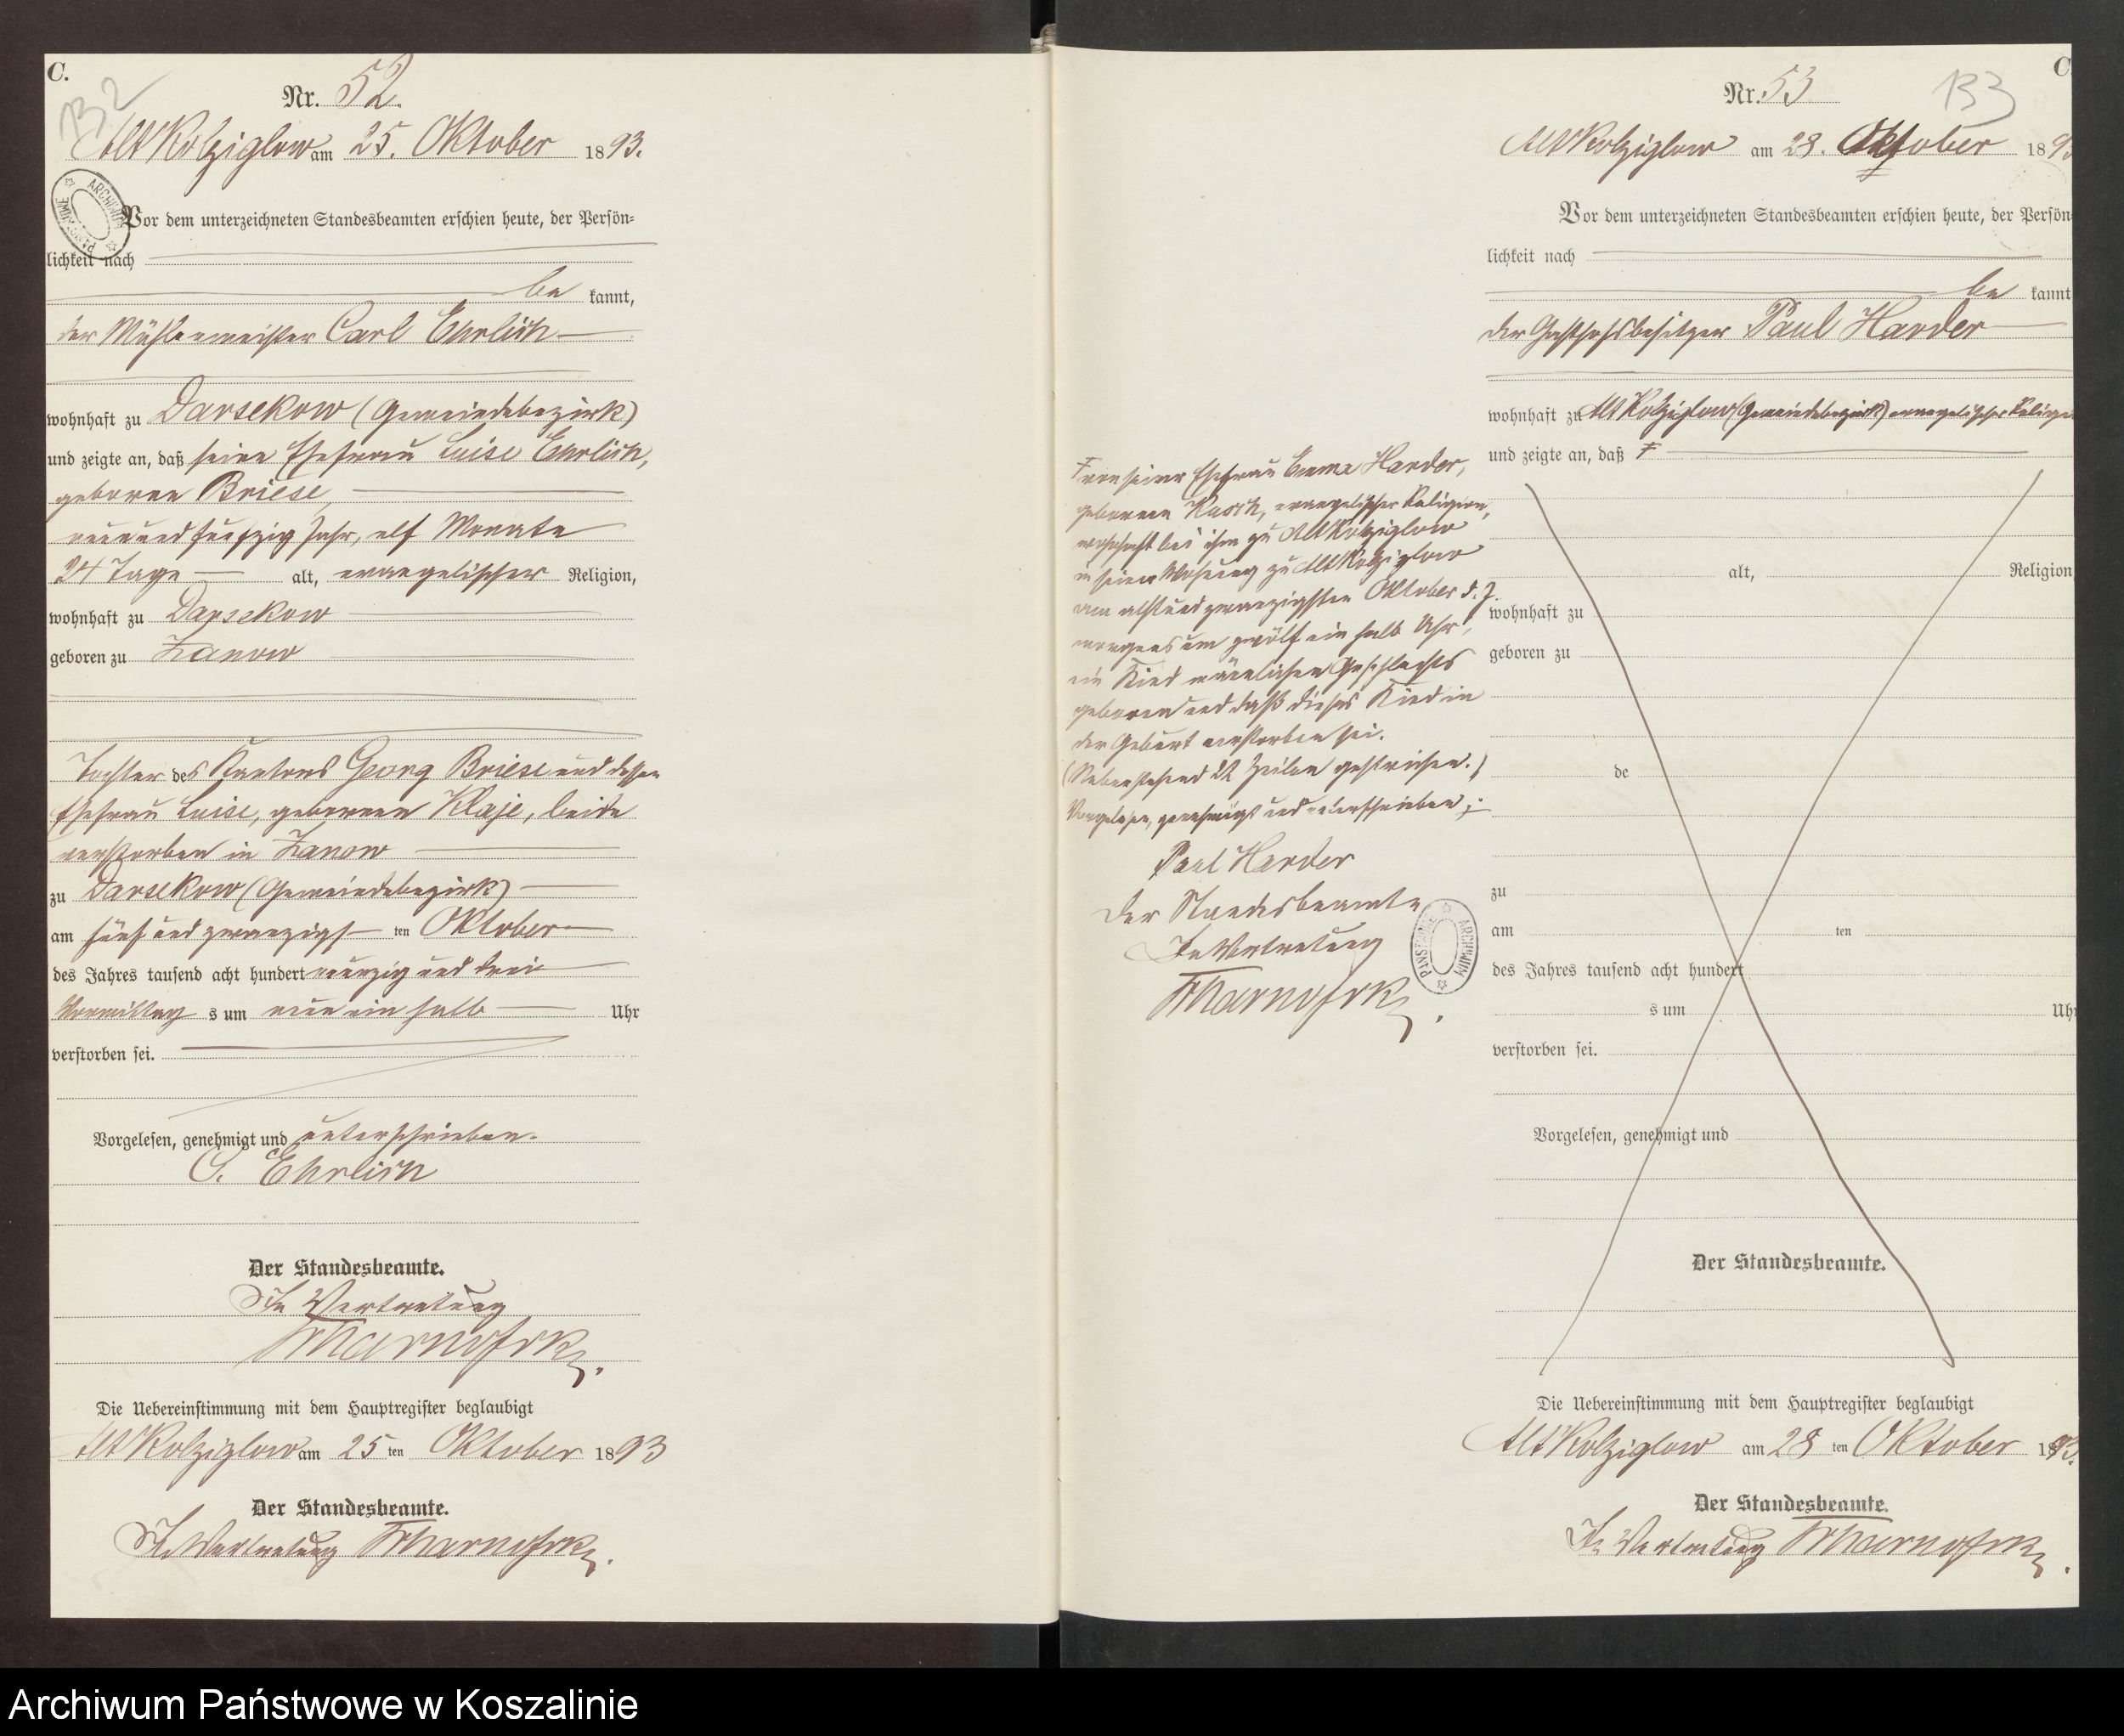 C.
132
Nr. 52.
Alt Kolziglow am 25. Oktober 1893.
ARCHIWUM PAŃSTWOWE
Vor dem unterzeichneten Standesbeamten erschien heute, der Persön-
lichkeit nach
be kannt,
der Mühlenmeister Carl Ehrlich
wohnhaft zu Darsekow (Gemeindebezirk)
und zeigte an, daß seine Ehefrau Luise Ehrlich,
geborene Briese,
neunundfünfzig Jahr, elf Monate
24 Tage alt, evangelischer Religion,
wohnhaft zu Darsekow
geboren zu Zanow
Tochter des Kantors Georg Briese und dessen
Ehefrau Luise, geborenen Klaje, beide
verstorben in Zanow
zu Darsekow (Gemeindebezirk)
am fünf und zwanzigs ten Oktober
des Jahres tausend acht hundert neunzig und drei
Vormittag s um neun ein halb Uhr
verstorben sei.
Vorgelesen, genehmigt und unterschrieben.
C. Ehrlich
Der Standesbeamte.
In Vertretung
Die Uebereinstimmung mit dem Hauptregister beglaubigt
Alt Kolziglow am 25 ten Oktober 1893
Der Standesbeamte.
In Vertretung
C
133
Nr. 53
Alt Kolziglow am 28. Oktober 189
Vor dem unterzeichneten Standesbeamten erschien heute, der Persön
lichkeit nach
be kannt
der Gasthofsbesitzer Paul Harder
wohnhaft zu Alt Kolziglow (Gemeindebezirk) evangelischer Religion
und zeigte an, daß F
F von seiner Ehefrau Emma Harder,
geborenen Kusch, evangelischer Religion,
wohnhaft bei ihm zu Alt Kolziglow
in seiner Wohnung zu Alt Kolziglow
am acht und zwanzigsten Oktober d. J.
morgens um zwölf ein halb Uhr,
ein Kind männlichen Geschlechts
geboren und daß dieses Kind in
der Geburt verstorben sei.
(Nebenstehend 22 Zeilen gestrichen.)
Vorgelesen, genehmigt und unterschrieben;
Paul Harder
Der Standesbeamte
In Vertretung
ARCHIWUM PAŃSTWOWE
alt, Religion
wohnhaft zu
geboren zu
de
zu
am ten
des Jahres tausend acht hundert
s um Uhr
verstorben sei.
Vorgelesen, genehmigt und
Der Standesbeamte.
Die Uebereinstimmung mit dem Hauptregister beglaubigt
Alt Kolziglow am 28 ten Oktober 1893.
Der Standesbeamte.
In Vertretung
Archiwum Państwowe w Koszalinie